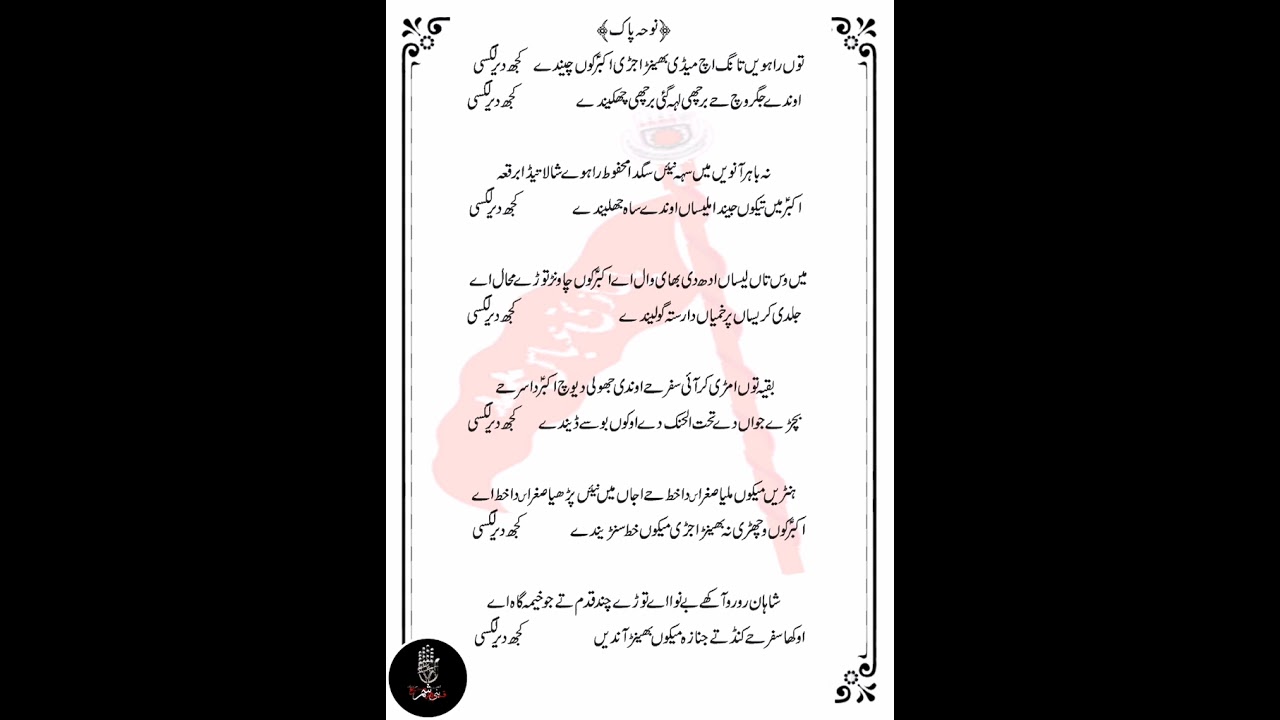 ﴿نوحہ پاک﴾
توں راہویں تانگ اچ میڈی بھینڑ اجڑی اکبرؑ کوں چیندے کجھ دیر لگسی
اوندے جگر وچ ہے برچھی لہہ گئی برچھی چھکیندے کجھ دیر لگسی
نہ باہر آنویں میں سہہ نئیں سگدا محفوظ راہوے شالا تیڈا برقعہ
اکبرؑ میں تیکوں جیندا ملیساں اوندے ساہ جھلیندے کجھ دیر لگسی
میں وس تاں لیساں ادھ دی بھای وال اے اکبرؑ کوں چاونڑ توڑے محال اے
جلدی کریساں پر خمیاں دا رستہ گولیندے کجھ دیر لگسی
بقیہ توں امڑی کر آئی سفر ہے اوندی جھولی دیوچ اکبرؑ دا سر ہے
بچڑے جواں دے تحت الحنک دے اوکوں بوسے ڈیندے کجھ دیر لگسی
ہنڑیں میکوں ملیا صغراؑ دا خط ہے اجاں میں نئیں پڑھیا صغراؑ دا خط اے
اکبرؑ کوں وچھڑی نہ بھینڑ اجڑی میکوں خط سنڑیندے کجھ دیر لگسی
شاہان رو رو آکھے بے نوا اے توڑے چند قدم تے جو خیمہ گاہ اے
اوکھا سفر ہے کنڈ تے جنازہ میکوں بھینڑ آندیں کجھ دیر لگسی